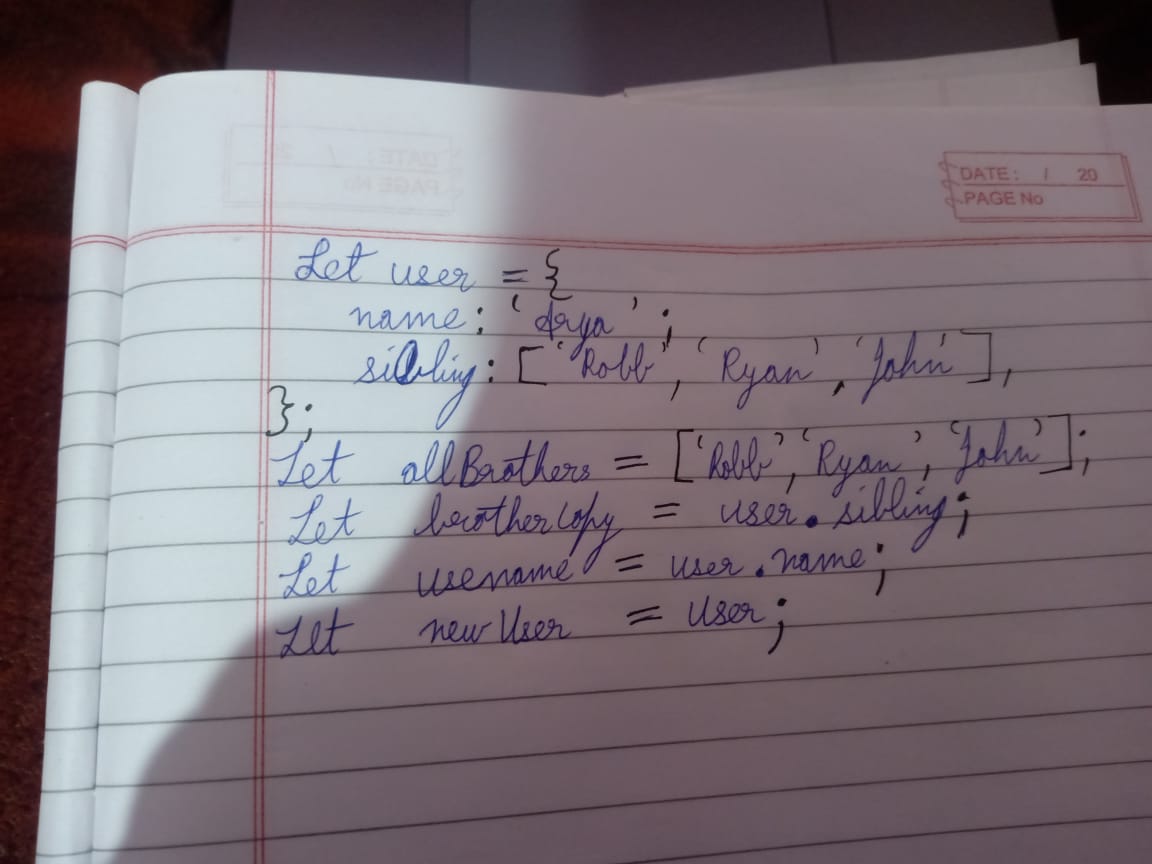 DATE: / 20
PAGE No
Let user = {
name: 'Arya' ;
sibling: ['Robb', 'Ryan', 'John'],
};
Let allBrothers = ['Robb', 'Ryan', 'John'];
Let brotherCopy = user.sibling;
Let usename = user.name;
Let newUser = user;